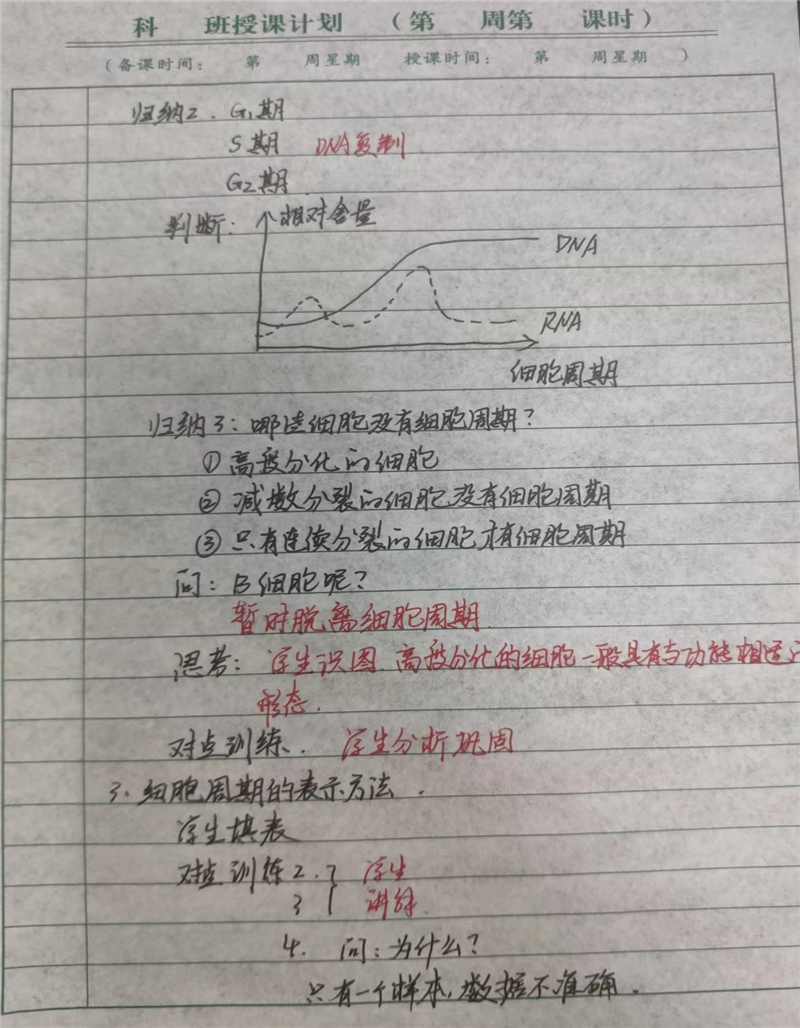 科 班授课计划 （第 周第 课时）
（备课时间： 第 周星期 授课时间： 第 周星期 ）
归纳2. G1期
S期 DNA复制
G2期.
判断: 相对含量
DNA
RNA
细胞周期
归纳3: 哪些细胞没有细胞周期?
① 高度分化的细胞
② 减数分裂的细胞没有细胞周期
③ 只有连续分裂的细胞才有细胞周期
问: B细胞呢?
暂时脱离细胞周期.
思考: 学生识图 高度分化的细胞一般具有与功能相适应
形态.
对点训练. 学生分析巩固
3. 细胞周期的表示方法.
学生填表
对点训练2. 学生
3 讲解.
4. 问: 为什么?
只有一个样本, 数据不准确.